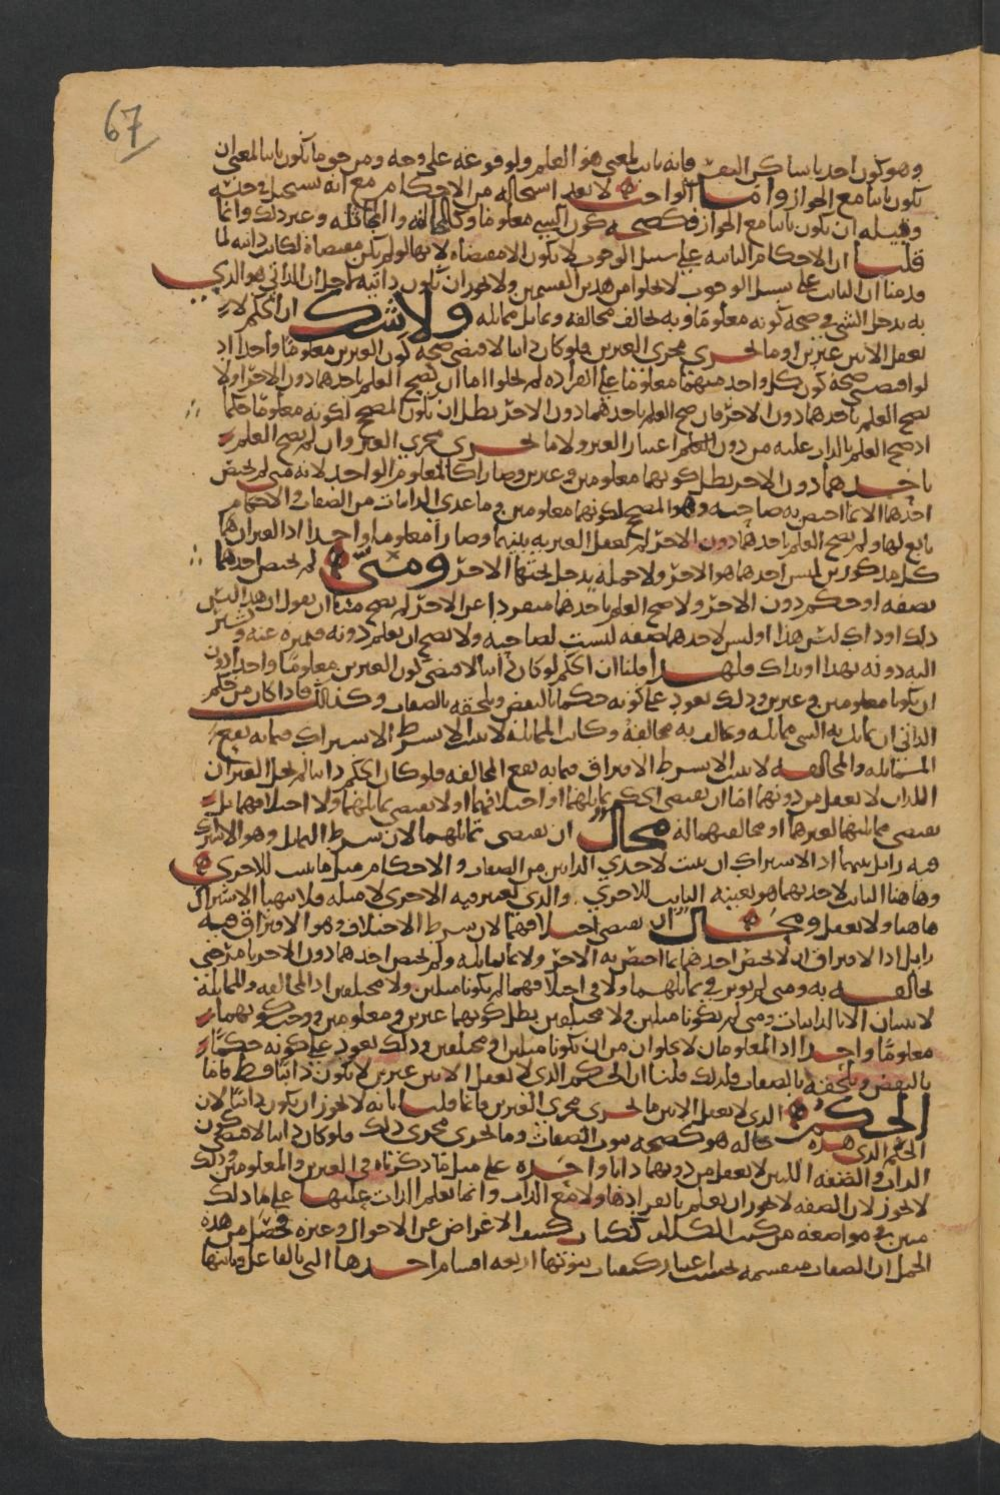 67
وهو كون احدنا ساكن النفس فإنه ثابت لمعنى هو العلم ولوقوعه على وجه ومن حق ما يكون ثابتا لمعنى ان
يكون ثابتا مع الجواز واما الواجب لا بعد استحالة من الاحكام مع انه يستحيل
وقبله ان يكون ثابتا مع الجواز فكصحة كون الشي معلوما وكالمخالفة والمماثلة وغير ذلك وانما
قلنا ان الاحكام الثابتة على سبيل الوجوب لا تكون الا مقتضاة لانها لو لم تكن مقتضاة لكانت ذاتية لما
قدمنا ان الثابت على سبيل الوجوب لا يخلو من هذين القسمين ولا يجوز ان تكون ذاتية لاجل ان الذاتي هو الذي
به يدخل الشي في صحة كونه معلوما وبه يخالف مخالفه ويماثل مماثله ولا شك ان الحكم لا
يعقل الا بين غيرين او ما يجري مجرى الغيرين فلو كان ذاتيا لاقتضى صحة كون الغيرين معلوما واحدا اذ
لو اقتضى صحة كون كل واحد منهما معلوما على انفراده لم يخلوا اما ان يصح العلم باحدهما دون الاخر او لا
يصح العلم باحدهما دون الاخر فان صح العلم باحدهما دون الاخر بطل ان يكون المصحح لكونه معلوما حكما
اذ صح العلم بالذات عليه من دون العلم اعتبار الغير ولا ما يجري مجرى الغير وان لم يصح العلم
باحدهما دون الاخر بطل كونهما معلومين وغيرين وصارا كالمعلوم الواحد لانه متى لم يختص
احدهما الا بما اختص به صاحبه وهو المصحح لكونهما معلومين وما عدى الذاتيات من الصفات والاحكام
تابع لها ولم يصح العلم باحدهما دون الاخر لم تعقل الغيرية بينهما وصارا معلوما واحدا اذ الغيران هما
كل مذكورين ليس احدهما هو الاخر ولا جملة يدخل تحتها الاخر ومتى لم يختص احدهما
بصفة او حكم دون الاخر ولا صح العلم باحدهما منفردا عن الاخر لم يصح منا ان نقول ان هذا ليس
ذلك او ذاك ليس هذا او ليس لاحدهما صفة ليست لصاحبه ولا يصح ان يعلم دونه فيميزه عنه ويشير
اليه دونه بهذا او بذاك فلهذا قلنا ان الحكم لو كان ذاتيا لاقتضى كون الغيرين معلوما واحدا دون
ان يكونا معلومين وغيرين وذلك يعود على كونه حكما بالنقض ويلحقه بالصفات وكذلك فاذا كان من حكم
الذاتي ان يماثل به الشي مماثله ويخالف به مخالفه وكانت المماثلة لا تثبت الا بشرط الاشتراك فيما به تقع
المماثلة والمخالفة لا تثبت الا بشرط الافتراق فيما به تقع المخالفة فلو كان الحكم ذاتيا لم يخل الغيران
اللذان لا يعقل من دونهما اما ان يقتضي الحكم تماثلهما او اختلافهما او لا يقتضي تماثلهما ولا اختلافهما بل
يقتضي مماثلتهما لغيرهما او مخالفتهما له محال ان يقتضي تماثلهما لان شرط التماثل وهو الاشتراك
فيه زايل بينهما اذ الاشتراك ان يثبت لاحدى الذاتين من الصفات والاحكام مثل ما يثبت للاخرى
وهاهنا الثابت لاحديهما هو بعينه الثابت للاخرى والذي تعتبر فيه الاخرى لا مثله فلا يتهيأ الاشتراك
هاهنا ولا يعقل ومحال ان يقتضي اختلافهما لان شرط الاختلاف وهو الافتراق فيه
زايل اذ الافتراق ان لا يختص احدهما بما اختص به الاخر ولا بما يماثله ولم يختص احدهما دون الاخر بامر حتى
يخالفه به ومتى لم يوثر في تماثلهما ولا في اختلافهما لم يكونا مثلين ولا مختلفين اذ المخالفة والمماثلة
لا يثبتان الا بالذاتيات ومتى لم يكونا مثلين ولا مختلفين بطل كونهما غيرين ومعلومين ووجب كونهما
معلوما واحدا اذ المعلومان لا يخلوان من ان يكونا مثلين او مختلفين وذلك يعود على كونه حكما
بالنقض ويلحقه بالصفات فلذلك قلنا ان الحكم الذي لا يعقل الا بين غيرين لا يكون ذاتيا قط فاما
الحكم الذي لا يعقل الا بين ما يجري مجرى الغيرين فانما قلنا بانه لا يجوز ان يكون ذاتيا لان
الحكم الذي هذه حاله هو كصحة ثبوت الصفات وما يجري مجرى ذلك فلو كان ذاتيا لاقتضى كون
الذات والصفة اللذين لا يعقل من دونهما ذاتا واحدة على مثل ما ذكرناه في الغيرين والمعلومين وذلك
لا يجوز لان الصفة لا يجوز ان تعلم بانفرادها ولا مع الذات وانما تعلم الذات عليها على ما ذلك
مبين في مواضعه من كتب الكلام ككتاب كشف الاغراض عن الاحوال وغيره فحصل من هذه
الجملة ان الصفات منقسمة بحسب اعتبار كيفيات ثبوتها اربعة اقسام احدها التي بالفاعل وثانيها